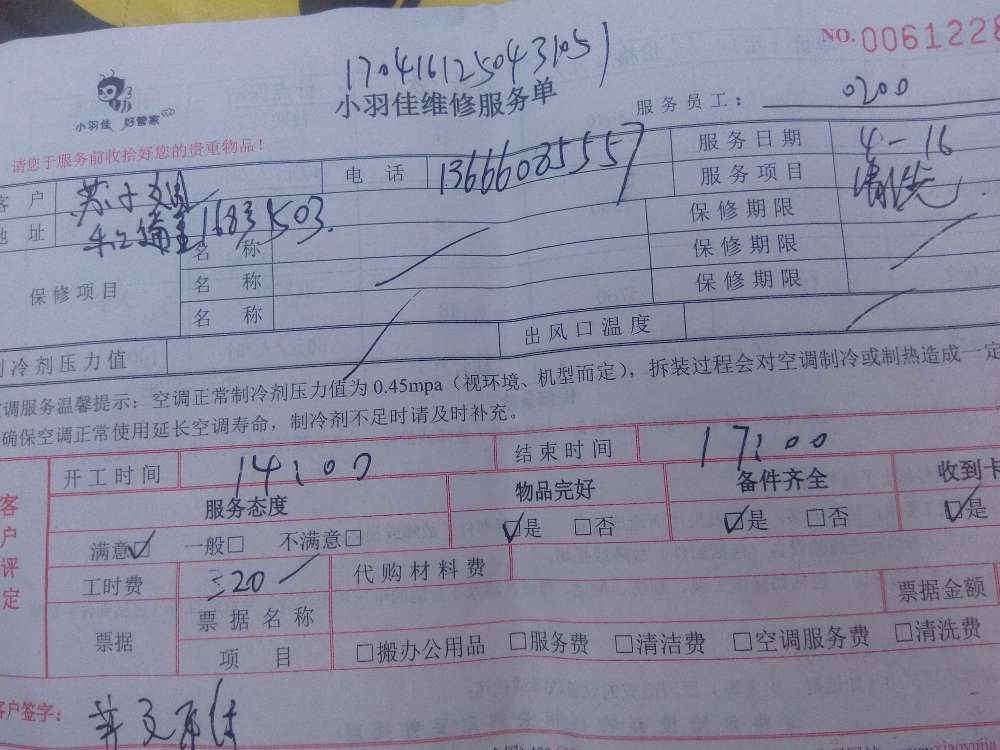 NO. 0061228
1704161250431051
小羽佳维修服务单
小羽佳 好管家
服务员工： 0200
请您于服务前收拾好您的贵重物品！
客 户 苏 电 话 13666085557 服务日期 4-16
地 址 1683 1503. 服务项目 清洗
保修项目 名 称 保修期限
名 称 保修期限
名 称 保修期限
制冷剂压力值 出风口温度
空调服务温馨提示：空调正常制冷剂压力值为 0.45mpa（视环境、机型而定），拆装过程会对空调制冷或制热造成一定
确保空调正常使用延长空调寿命，制冷剂不足时请及时补充。
客户评定
开工时间 14:00 结束时间 17:00
服务态度 物品完好 备件齐全 收到卡
满意☑ 一般□ 不满意□ ☑是 □否 ☑是 □否 ☑是
工时费 320 代购材料费
票据 票据名称 票据金额
项 目 □搬办公用品 □服务费 □清洁费 □空调服务费 □清洗费
客户签字：